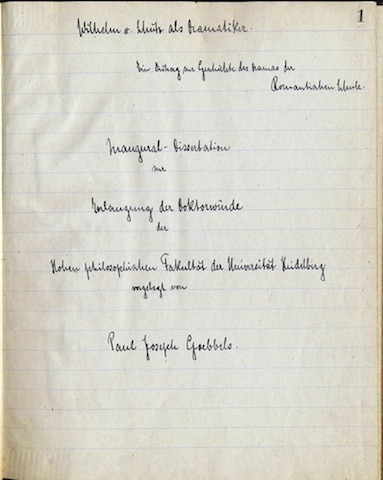 1
Wilhelm v. Schütz als Dramatiker.
Ein Beitrag zur Geschichte des Dramas der
Romantischen Schule.
Inaugural-Dissertation
zur
Erlangung der Doktorwürde
der
Hohen philosophischen Fakultät der Universität Heidelberg
vorgelegt von
Paul Joseph Goebbels.